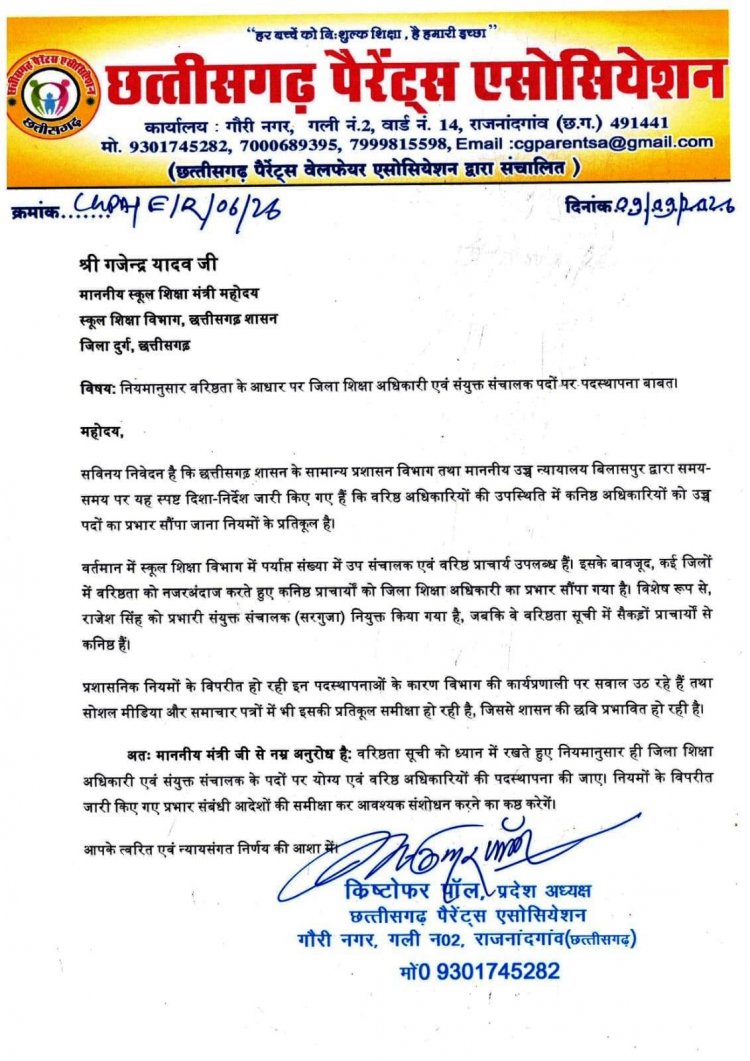 "हर बच्चें को निःशुल्क शिक्षा , है हमारी इच्छा"
छत्तीसगढ़ पैरेंट्स एसोसियेशन
छत्तीसगढ़ पैरेंट्स एसोसियेशन
छत्तीसगढ़
कार्यालय : गौरी नगर, गली नं.2, वार्ड नं. 14, राजनांदगांव (छ.ग.) 491441
मो. 9301745282, 7000689395, 7999815598, Email :cgparentsa@gmail.com
(छत्तीसगढ़ पैरेंट्स वेलफेयर एसोसियेशन द्वारा संचालित )
क्रमांक....... CGPA/E/R/06/26 दिनांक.
श्री गजेन्द्र यादव जी
माननीय स्कूल शिक्षा मंत्री महोदय
स्कूल शिक्षा विभाग, छत्तीसगढ़ शासन
जिला दुर्ग, छत्तीसगढ़
विषय: नियमानुसार वरिष्ठता के आधार पर जिला शिक्षा अधिकारी एवं संयुक्त संचालक पदों पर पदस्थापना बाबत।
महोदय,
सविनय निवेदन है कि छत्तीसगढ़ शासन के सामान्य प्रशासन विभाग तथा माननीय उच्च न्यायालय बिलासपुर द्वारा समय-
समय पर यह स्पष्ट दिशा-निर्देश जारी किए गए हैं कि वरिष्ठ अधिकारियों की उपस्थिति में कनिष्ठ अधिकारियों को उच्च
पदों का प्रभार सौंपा जाना नियमों के प्रतिकूल है।
वर्तमान में स्कूल शिक्षा विभाग में पर्याप्त संख्या में उप संचालक एवं वरिष्ठ प्राचार्य उपलब्ध हैं। इसके बावजूद, कई जिलों
में वरिष्ठता को नजरअंदाज करते हुए कनिष्ठ प्राचार्यों को जिला शिक्षा अधिकारी का प्रभार सौंपा गया है। विशेष रूप से,
राजेश सिंह को प्रभारी संयुक्त संचालक (सरगुजा) नियुक्त किया गया है, जबकि वे वरिष्ठता सूची में सैकड़ों प्राचार्यों से
कनिष्ठ हैं।
प्रशासनिक नियमों के विपरीत हो रही इन पदस्थापनाओं के कारण विभाग की कार्यप्रणाली पर सवाल उठ रहे हैं तथा
सोशल मीडिया और समाचार पत्रों में भी इसकी प्रतिकूल समीक्षा हो रही है, जिससे शासन की छवि प्रभावित हो रही है।
अतः माननीय मंत्री जी से नम्र अनुरोध है: वरिष्ठता सूची को ध्यान में रखते हुए नियमानुसार ही जिला शिक्षा
अधिकारी एवं संयुक्त संचालक के पदों पर योग्य एवं वरिष्ठ अधिकारियों की पदस्थापना की जाए। नियमों के विपरीत
जारी किए गए प्रभार संबंधी आदेशों की समीक्षा कर आवश्यक संशोधन करने का कष्ठ करेगें।
आपके त्वरित एवं न्यायसंगत निर्णय की आशा में।
किष्टोफर पॉल, प्रदेश अध्यक्ष
छत्तीसगढ़ पैरेंट्स एसोसियेशन
गौरी नगर, गली न02, राजनांदगांव(छत्तीसगढ़)
मों0 9301745282